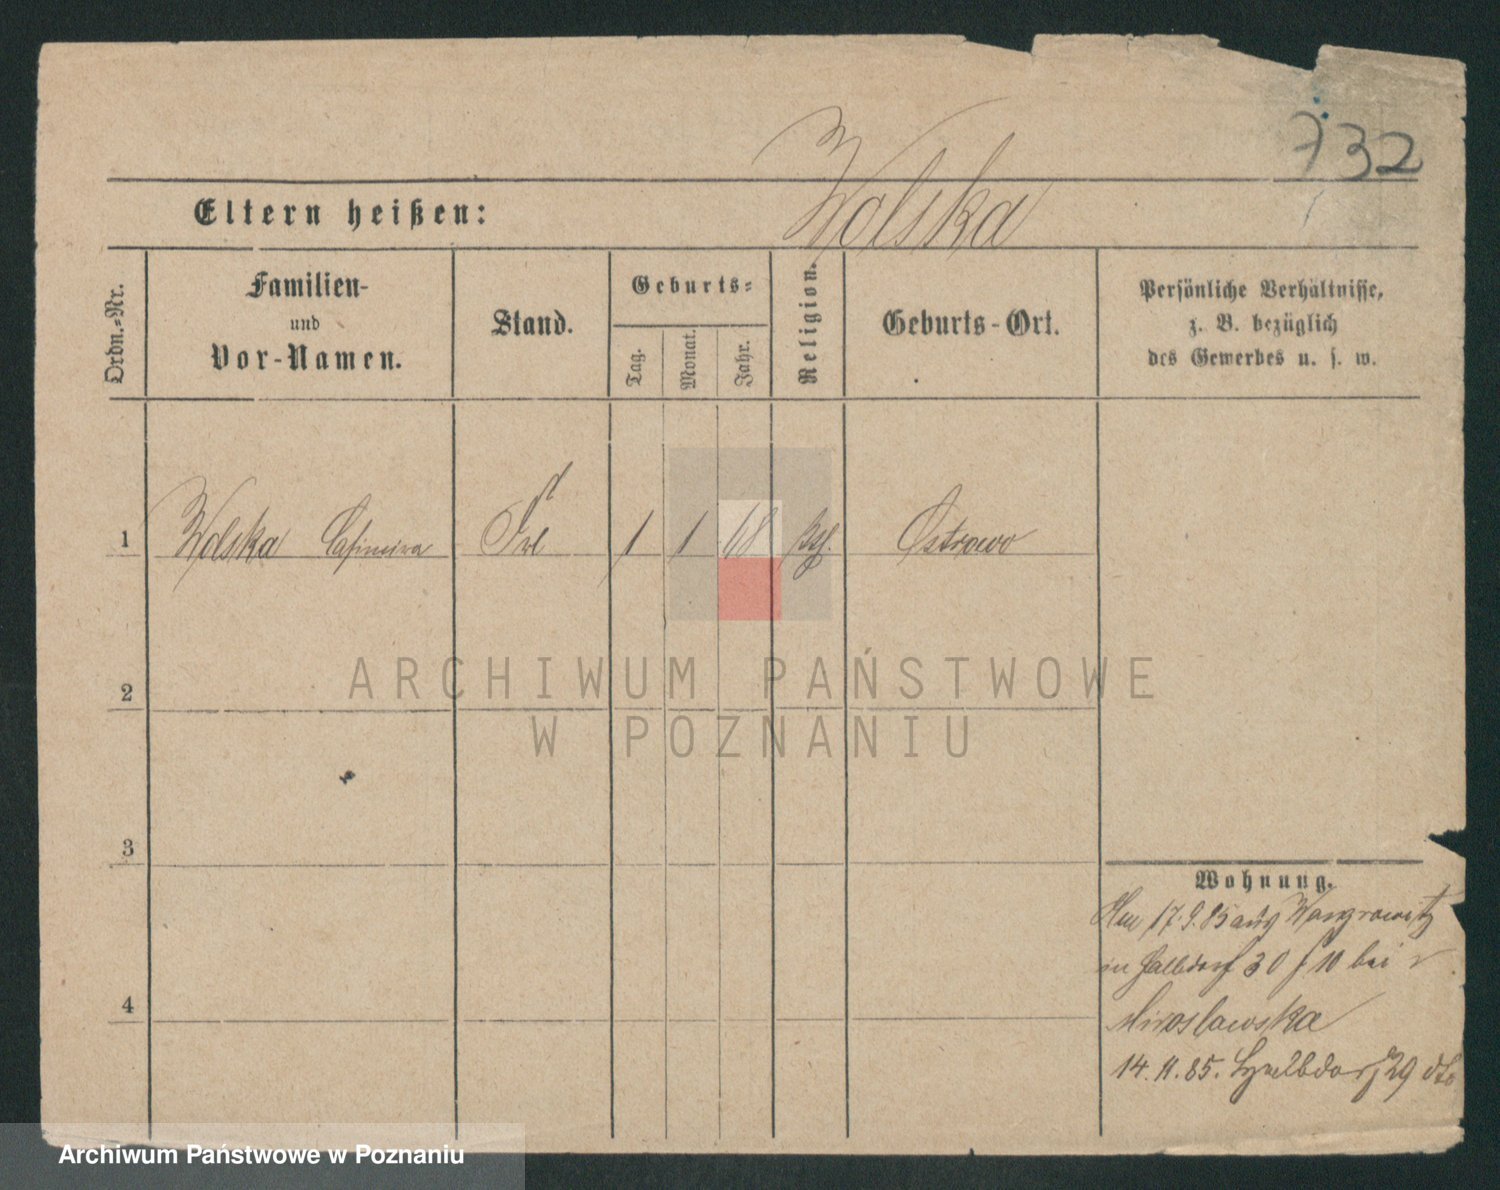 732
Wolska
Eltern heißen:
Ordn.=Nr.
Familien-
und
Vor-Namen.
Stand.
Geburts=
Tag.
Monat.
Jahr.
Religion.
Geburts-Ort.
Persönliche Verhältnisse,
z. B. bezüglich
des Gewerbes u. s. w.
1 Wolska Casimira 1 1 68 Ostrowo
2
ARCHIWUM PAŃSTWOWE
W POZNANIU
3
4
Wohnung.
17.9.85 aus Wangrowitz
in Halbdorf 30 bei
Miroslawska
14.11.85. Halbdorf 29
Archiwum Państwowe w Poznaniu